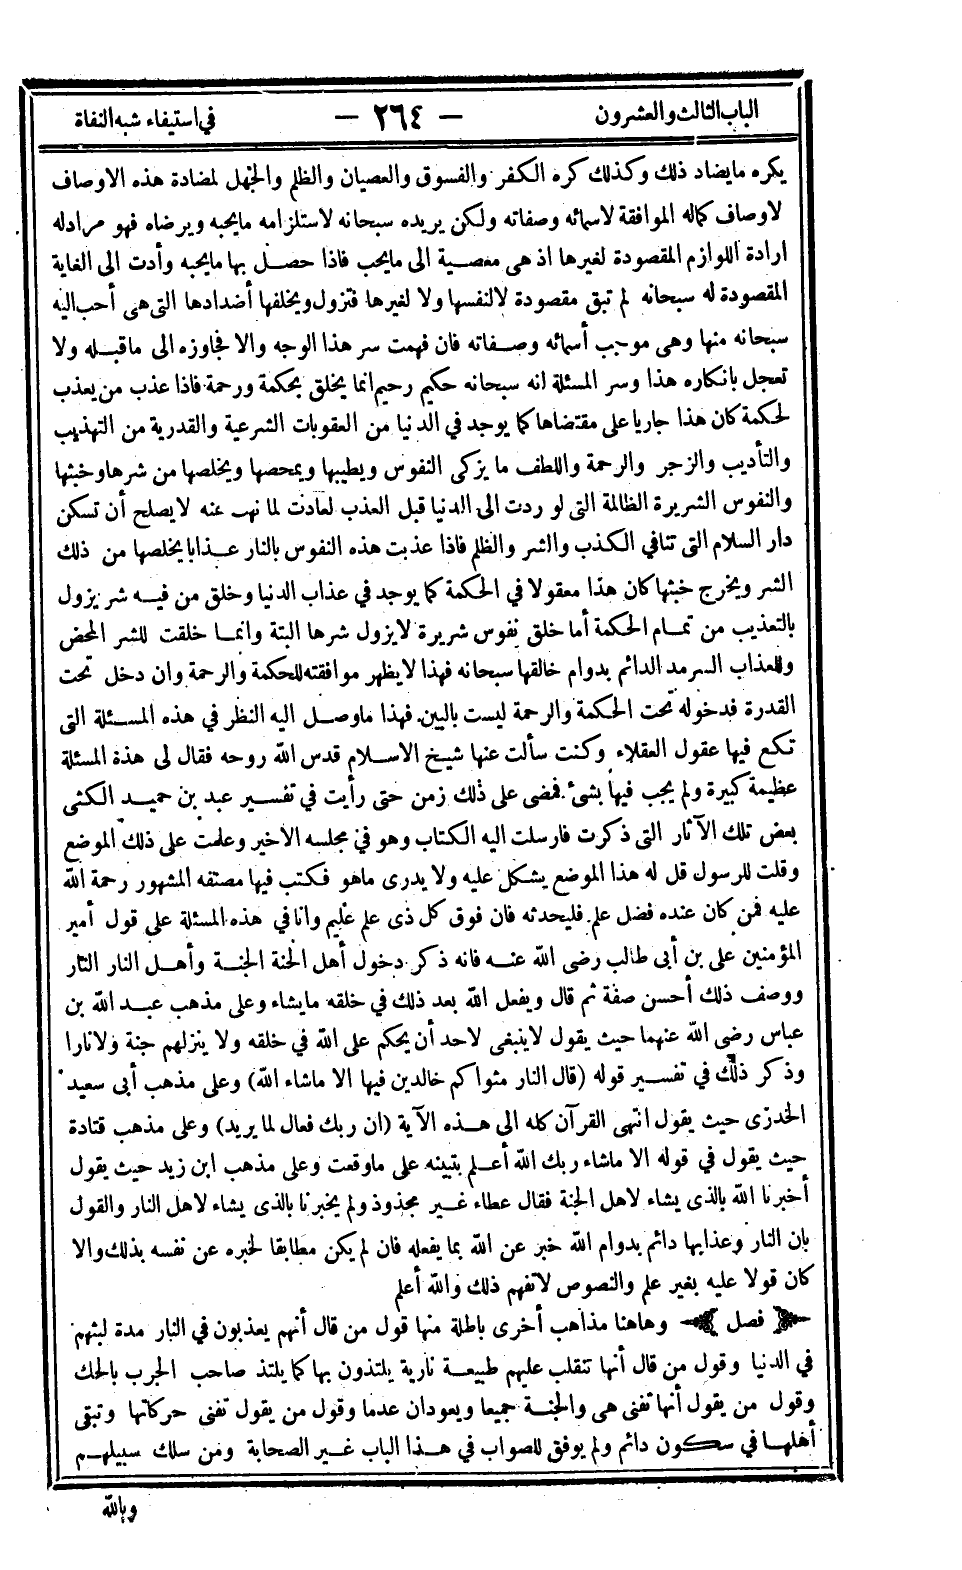 الباب الثالث والعشرون — ٢٦٤ — في استيفاء شبه النفاة
يكره مايضاد ذلك وكذلك كره الكفر والفسوق والعصيان والظلم والجهل لمضادة هذه الاوصاف
لاوصاف كماله الموافقة لاسمائه وصفاته ولكن يريده سبحانه لاستلزامه مايحبه ويرضاه فهو مرادله
ارادة اللوازم المقصودة لغيرها اذ هى مفضية الى مايحب فاذا حصل بها مايحبه وأدت الى الغاية
المقصودة له سبحانه لم تبق مقصودة لالنفسها ولا لغيرها فتزول ويخلفها أضدادها التى هى أحب اليه
سبحانه منها وهى موجب أسمائه وصفاته فان فهمت سر هذا الوجه والا فجاوزه الى ماقبله ولا
تعجل بانكاره هذا وسر المسئلة انه سبحانه حكيم رحيم انما يخلق بحكمة ورحمة فاذا عذب من يعذب
لحكمة كان هذا جاريا على مقتضاها كما يوجد في الدنيا من العقوبات الشرعية والقدرية من التهذيب
والتأديب والزجر والرحمة واللطف ما يزكى النفوس ويطيبها ويمحصها ويخلصها من شرها وخبثها
والنفوس الشريرة الظالمة التى لو ردت الى الدنيا قبل العذب لعادت لما نهب عنه لايصلح أن تسكن
دار السلام التى تنافي الكذب والشر والظلم فاذا عذبت هذه النفوس بالنار عذابا يخلصها من ذلك
الشر ويخرج خبثها كان هذا معقولا في الحكمة كما يوجد في عذاب الدنيا وخلق من فيه شر يزول
بالتعذيب من تمام الحكمة أما خلق نفوس شريرة لايزول شرها البتة وانما خلقت للشر المحض
وللعذاب السرمد الدائم بدوام خالقها سبحانه فهذا لايظهر موافقته للحكمة والرحمة وان دخل تحت
القدرة فدخوله تحت الحكمة والرحمة ليست بالبين فهذا ماوصل اليه النظر في هذه المسئلة التى
تكع فيها عقول العقلاء وكنت سألت عنها شيخ الاسلام قدس الله روحه فقال لى هذة المسئلة
عظيمة كبيرة ولم يجب فيها بشئ فمضى على ذلك زمن حتى رأيت في تفسير عبد بن حميد الكثى
بعض تلك الآثار التى ذكرت فارسلت اليه الكتاب وهو في مجلسه الاخير وعلمت على ذلك الموضع
وقلت للرسول قل له هذا الموضع يشكل عليه ولا يدرى ماهو فكتب فيها مصنفه المشهور رحمة الله
عليه فمن كان عنده فضل علم فليحدثه فان فوق كل ذى علم عليم وانا في هذه المسئلة على قول أمير
المؤمنين على بن أبى طالب رضى الله عنه فانه ذكر دخول أهل الجنة الجنة وأهل النار النار
ووصف ذلك أحسن صفة ثم قال ويفعل الله بعد ذلك في خلقه مايشاء وعلى مذهب عبد الله بن
عباس رضى الله عنهما حيث يقول لاينبغى لاحد أن يحكم على الله في خلقه ولا ينزلهم جنة ولانارا
وذكر ذلك في تفسير قوله (قال النار مثواكم خالدين فيها الا ماشاء الله) وعلى مذهب أبى سعيد
الخدرى حيث يقول انتهى القرآن كله الى هذه الآية (ان ربك فعال لما يريد) وعلى مذهب قتادة
حيث يقول في قوله الا ماشاء ربك الله أعلم بتبينه على ماوقعت وعلى مذهب ابن زيد حيث يقول
أخبرنا الله بالذى يشاء لاهل الجنة فقال عطاء غير مجذوذ ولم يخبرنا بالذى يشاء لاهل النار والقول
بان النار وعذابها دائم بدوام الله خبر عن الله بما يفعله فان لم يكن مطابقا لخبره عن نفسه بذلك والا
كان قولا عليه بغير علم والنصوص لاتفهم ذلك والله أعلم
فصل وهاهنا مذاهب أخرى باطلة منها قول من قال أنهم يعذبون في النار مدة لبثهم
في الدنيا وقول من قال أنها تنقلب عليهم طبيعة نارية يلتذون بها كما يلتذ صاحب الجرب بالحك
وقول من يقول أنها تفنى هى والجنة جميعا ويعودان عدما وقول من يقول تفنى حركاتها وتبقى
أهلها في سكون دائم ولم يوفق للصواب في هذا الباب غير الصحابة ومن سلك سبيلهم
وبالله